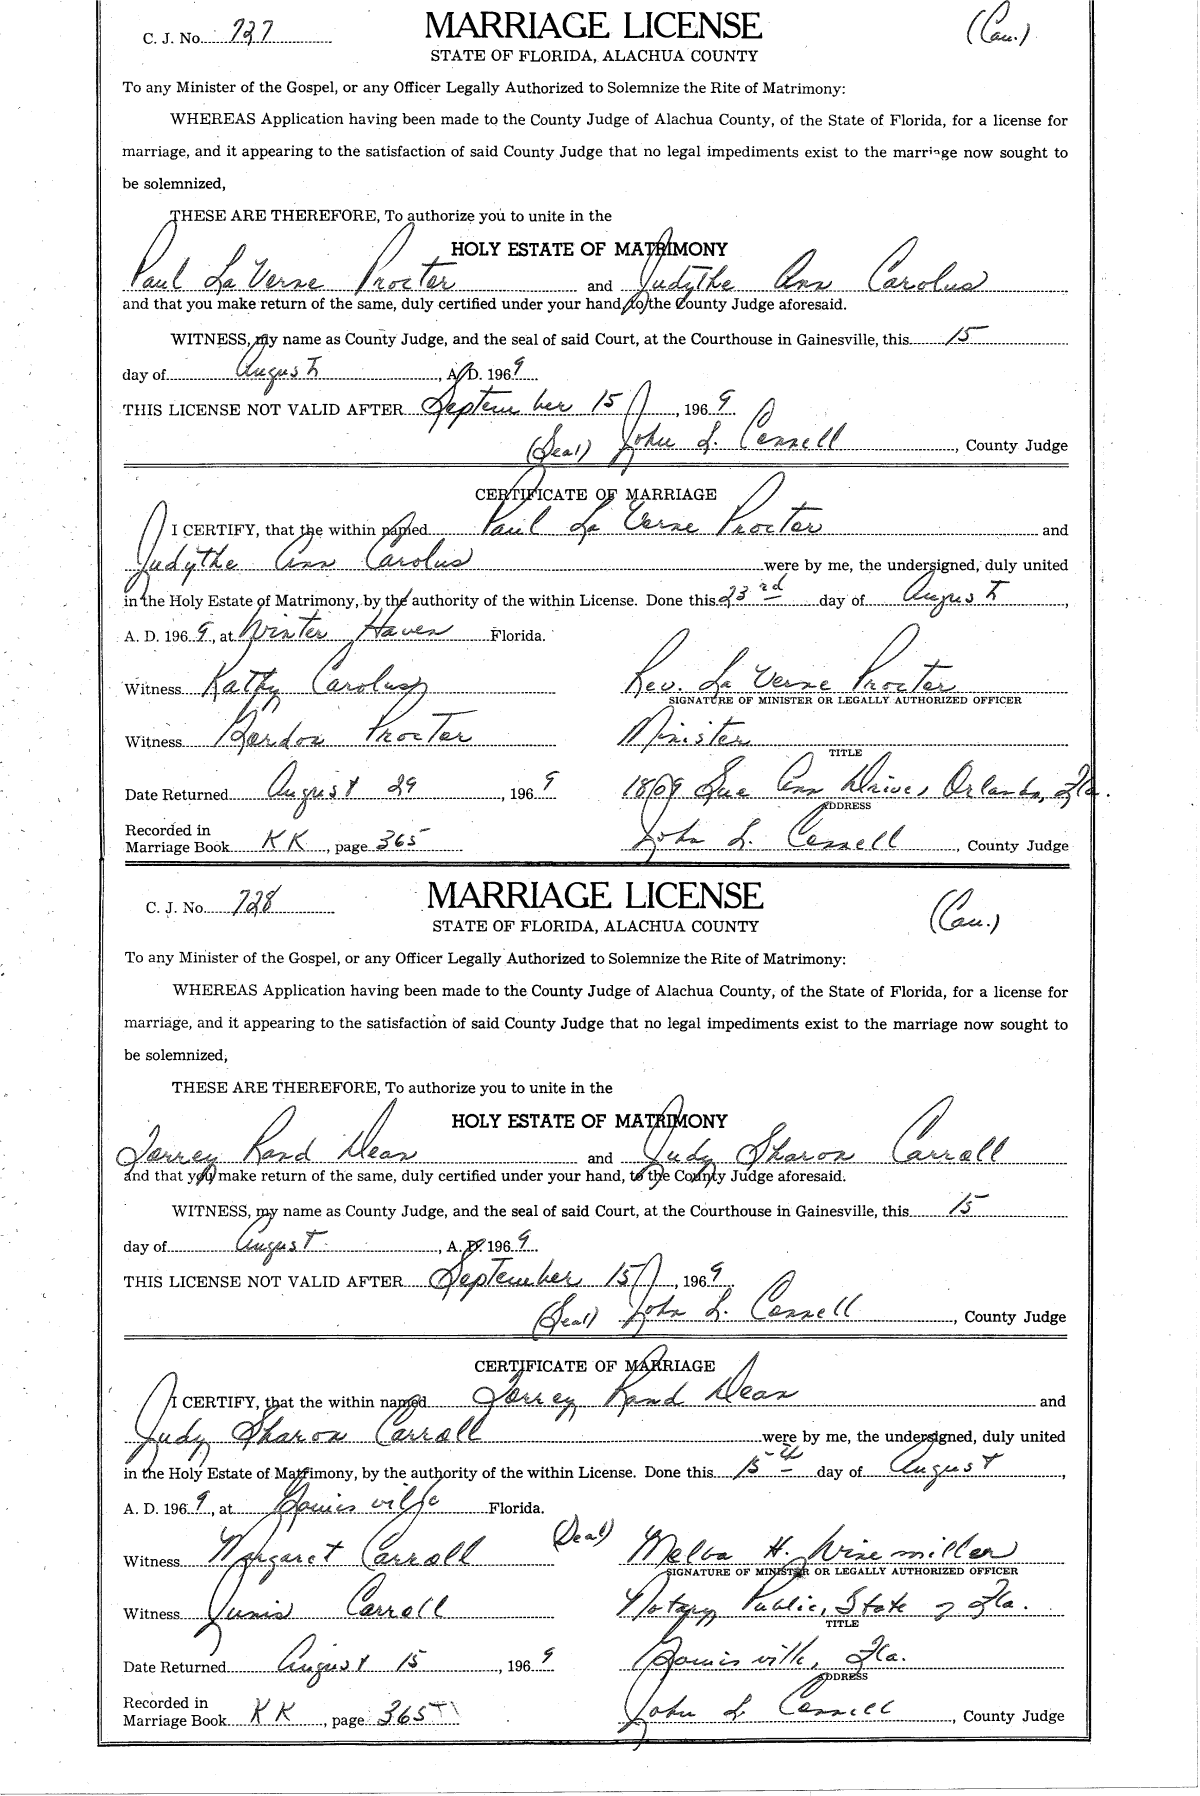 C. J. No. 727 MARRIAGE LICENSE (Cau.)
STATE OF FLORIDA, ALACHUA COUNTY
To any Minister of the Gospel, or any Officer Legally Authorized to Solemnize the Rite of Matrimony:
WHEREAS Application having been made to the County Judge of Alachua County, of the State of Florida, for a license for
marriage, and it appearing to the satisfaction of said County Judge that no legal impediments exist to the marriage now sought to
be solemnized,
THESE ARE THEREFORE, To authorize you to unite in the
HOLY ESTATE OF MATRIMONY
Paul La Verne Procter and Judythe Ann Carolus
and that you make return of the same, duly certified under your hand, to the County Judge aforesaid.
WITNESS, my name as County Judge, and the seal of said Court, at the Courthouse in Gainesville, this 15
day of August, A. D. 1969
THIS LICENSE NOT VALID AFTER September 15, 1969
(Seal) John L. Connell, County Judge
CERTIFICATE OF MARRIAGE
I CERTIFY, that the within named Paul La Verne Procter and
Judythe Ann Carolus were by me, the undersigned, duly united
in the Holy Estate of Matrimony, by the authority of the within License. Done this 23rd day of August,
A. D. 1969, at Winter Haven Florida.
Witness Kathy Carolus Rev. La Verne Procter
SIGNATURE OF MINISTER OR LEGALLY AUTHORIZED OFFICER
Witness Gordon Procter Minister
TITLE
Date Returned August 29, 1969 1809 Sue Ann Drive, Orlando, Fla.
ADDRESS
Recorded in
Marriage Book KK, page 365 John L. Connell, County Judge
C. J. No. 728 MARRIAGE LICENSE (Cau.)
STATE OF FLORIDA, ALACHUA COUNTY
To any Minister of the Gospel, or any Officer Legally Authorized to Solemnize the Rite of Matrimony:
WHEREAS Application having been made to the County Judge of Alachua County, of the State of Florida, for a license for
marriage, and it appearing to the satisfaction of said County Judge that no legal impediments exist to the marriage now sought to
be solemnized,
THESE ARE THEREFORE, To authorize you to unite in the
HOLY ESTATE OF MATRIMONY
Torrey Rand Dean and Judy Sharon Carroll
and that you make return of the same, duly certified under your hand, to the County Judge aforesaid.
WITNESS, my name as County Judge, and the seal of said Court, at the Courthouse in Gainesville, this 15
day of August, A. D. 1969
THIS LICENSE NOT VALID AFTER September 15, 1969
(Seal) John L. Connell, County Judge
CERTIFICATE OF MARRIAGE
I CERTIFY, that the within named Torrey Rand Dean and
Judy Sharon Carroll were by me, the undersigned, duly united
in the Holy Estate of Matrimony, by the authority of the within License. Done this 15th day of August,
A. D. 1969, at Gainesville Florida.
Witness Margaret Carroll (Seal) Melba H. Winemiller
SIGNATURE OF MINISTER OR LEGALLY AUTHORIZED OFFICER
Witness Junis Carroll Notary Public, State of Fla.
TITLE
Date Returned August 15, 1969 Gainesville, Fla.
ADDRESS
Recorded in
Marriage Book KK, page 365 John L Connell, County Judge